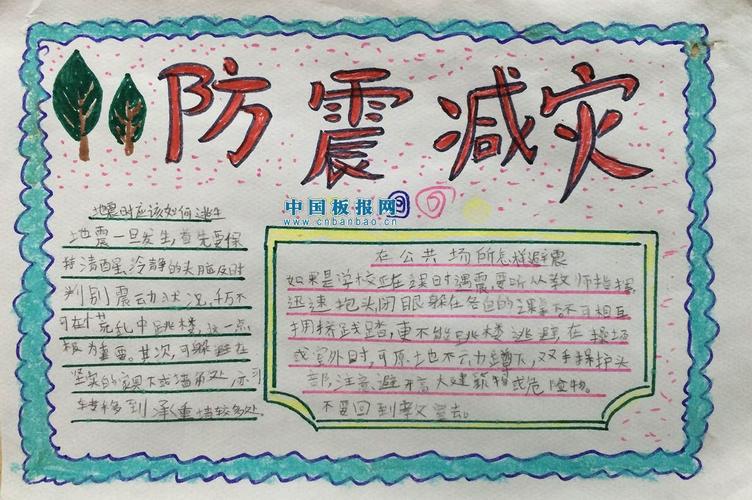 防震减灾
中国板报网
www.cnbanbao.cn
地震时应该如何逃生
地震一旦发生,首先要保
持清醒、冷静的头脑及时
判别震动状况,千万不
可在慌乱中跳楼,这一点
极为重要。其次,可躲避在
坚实的家具下或墙角处,亦可
转移到承重墙较多处
在公共场所怎样避震
如果是学校正在课时遇震,要听从教师指挥,
迅速抱头、闭眼躲在各自的课桌下不可相互
拥挤践踏,更不能跳楼逃避,在操场
或室外时,可原地不动蹲下,双手保护头
部,注意避开高大建筑物或危险物。
不要回到教室去。